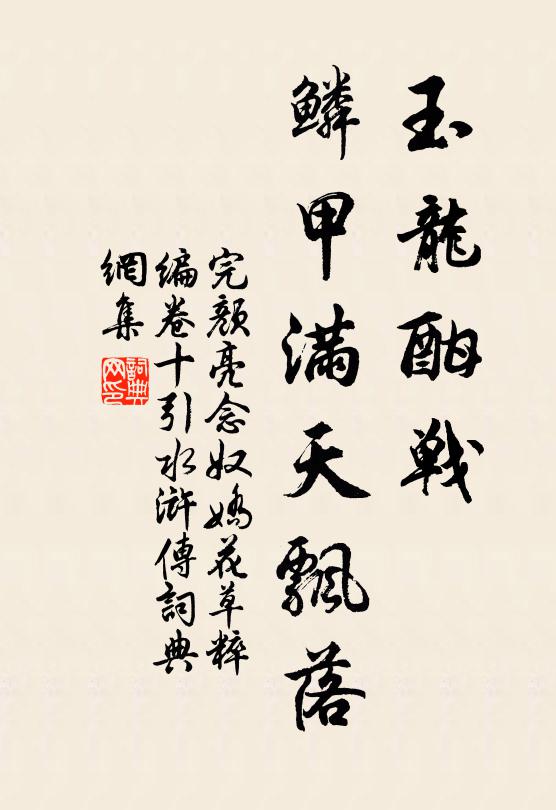 玉龍酣戰
鱗甲滿天飄落
完顏亮念奴嬌花草粹
編卷十引水滸傳詞典
網集
詞典
网印